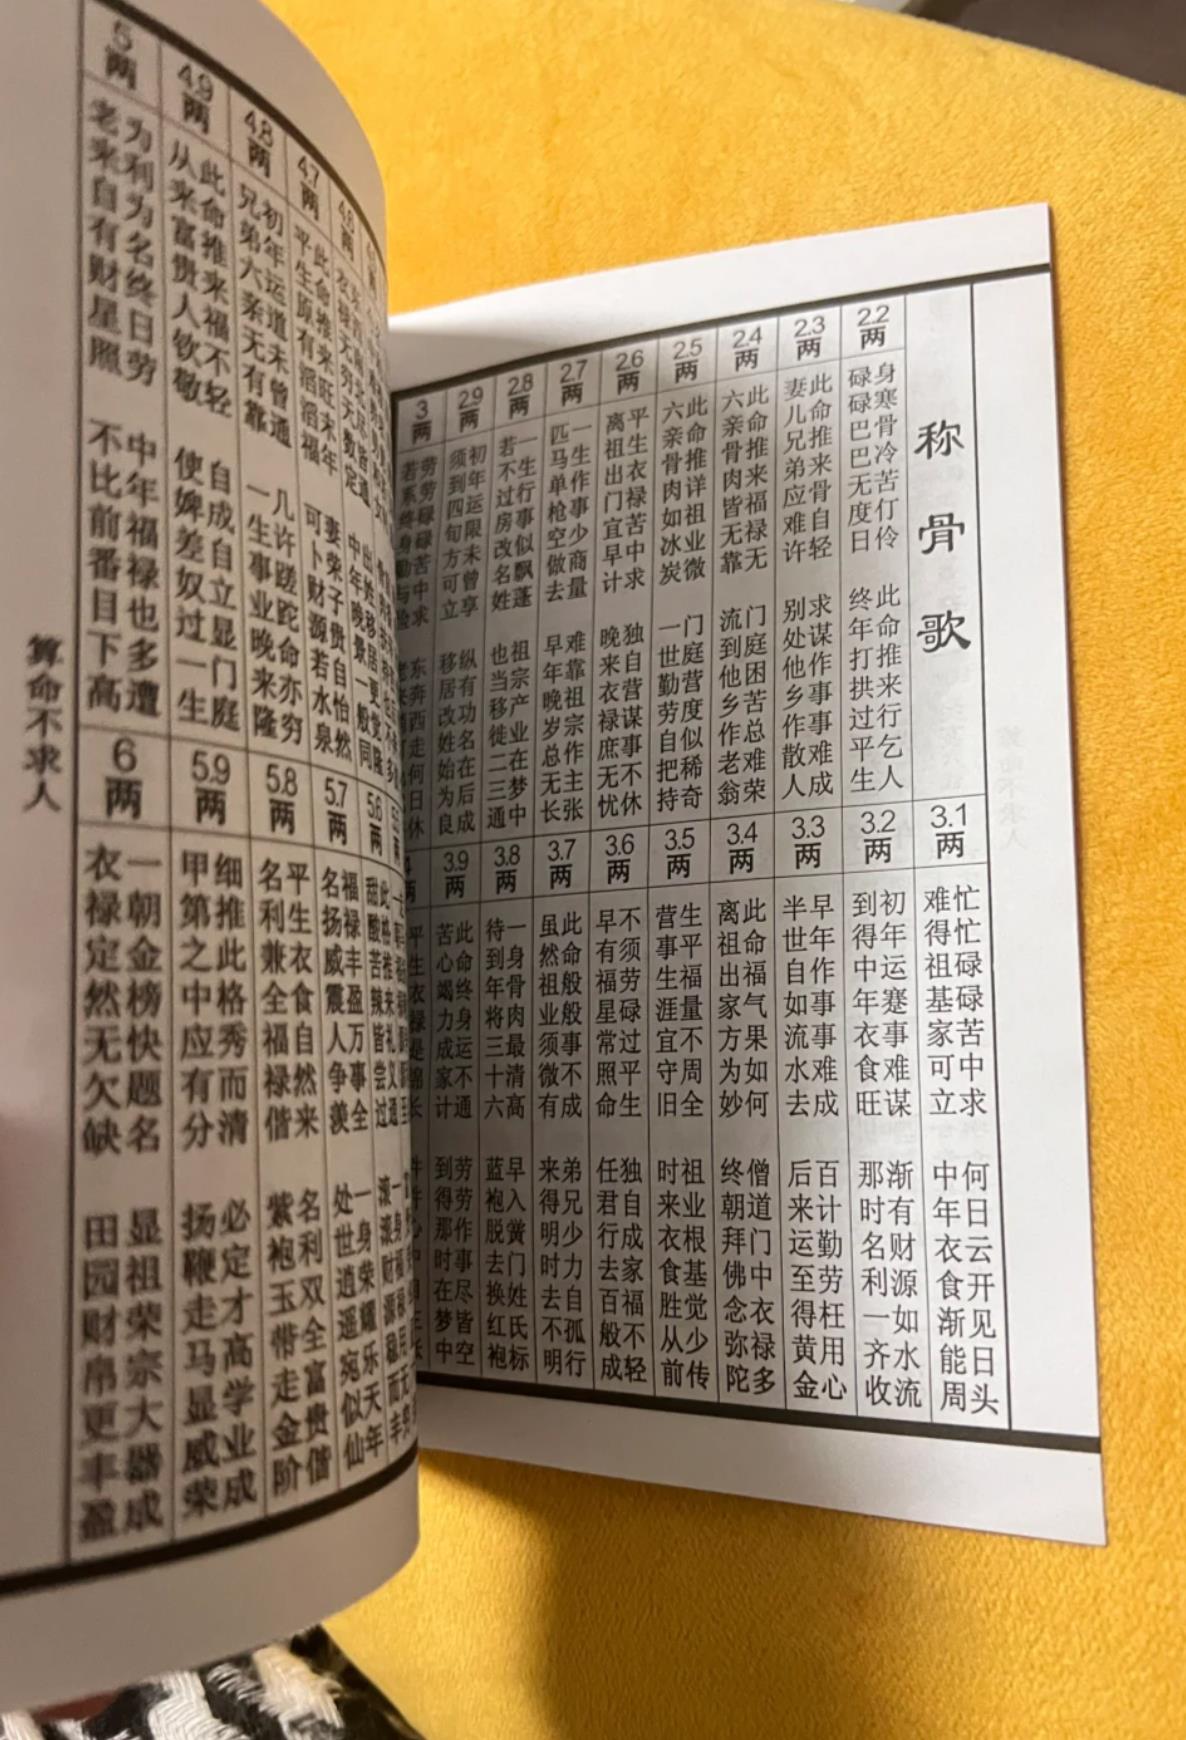 称骨歌
2.2两
身寒骨冷苦仃伶 此命推来行乞人
碌碌巴巴无度日 终年打拱过平生
2.3两
此命推来骨自轻 求谋作事事难成
妻儿兄弟应难许 别处他乡作散人
2.4两
此命推来福禄无 门庭困苦总难荣
六亲骨肉皆无靠 流到他乡作老翁
2.5两
此命推详祖业微 门庭营度似稀奇
六亲骨肉如冰炭 一世勤劳自把持
2.6两
平生衣禄苦中求 独自营谋事不休
离祖出门宜早计 晚来衣禄庶无忧
2.7两
一生作事少商量 难靠祖宗作主张
匹马单枪空做去 早年晚岁总无长
2.8两
一生行事似飘蓬 祖宗产业在梦中
若不过房改名姓 也当移徙二三通
2.9两
初年运限未曾享 纵有功名在后成
须到四旬方可立 移居改姓始为良
3两
劳劳碌碌苦中求 东奔西走何日休
若系终身勤与俭
3.1两
忙忙碌碌苦中求 何日云开见日头
难得祖基家可立 中年衣食渐能周
3.2两
初年运蹇事难谋 渐有财源如水流
到得中年衣食旺 那时名利一齐收
3.3两
早年作事事难成 百计勤劳枉用心
半世自如流水去 后来运至得黄金
3.4两
此命福气果如何 僧道门中衣禄多
离祖出家方为妙 终朝拜佛念弥陀
3.5两
生平福量不周全 祖业根基觉少传
营事生涯宜守旧 时来衣食胜从前
3.6两
不须劳碌过平生 独自成家福不轻
早有福星常照命 任君行去百般成
3.7两
此命般般事不成 弟兄少力自孤行
虽然祖业须微有 来得明时去不明
3.8两
一身骨肉最清高 早入黉门姓氏标
待到年将三十六 蓝袍脱去换红袍
3.9两
此命终身运不通 劳劳作事尽皆空
苦心竭力成家计 到得那时在梦中
4两
平生衣禄是绵长
4.6两
衣禄无穷无数定 中年晚景一般同
4.7两
此命推来旺末年 妻荣子贵自怡然
平生原有滔滔福 可卜财源若水泉
4.8两
初年运道未曾通 几许蹉跎命亦穷
兄弟六亲无有靠 一生事业晚来隆
4.9两
此命推来福不轻 自成自立显门庭
从来富贵人钦敬 使婢差奴过一生
5两
为利为名终日劳 中年福禄也多遭
老来自有财星照 不比前番目下高
5.6两
此格推来礼义通 一身福禄用无穷
甜酸苦辣皆尝过 滚滚财源稳而丰
5.7两
福禄丰盈万事全 一身荣耀乐天年
名扬威震人争羡 处世逍遥宛似仙
5.8两
平生衣食自然来 名利双全富贵偕
名利兼全福禄偕 紫袍玉带走金阶
5.9两
细推此格秀而清 必定才高学业成
甲第之中应有分 扬鞭走马显威荣
6两
一朝金榜快题名 显祖荣宗大器成
衣禄定然无欠缺 田园财帛更丰盈
算命不求人